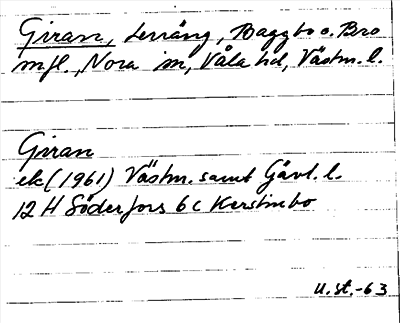 Giran, terräng, Baggbo o. Bro
mfl., Nora sn, Våla hd, Västm. l.
Giran
ek (1961) Västm. samt Gävl. l.
12 H Söderfors 6 c Kerstinbo
U.st.-63